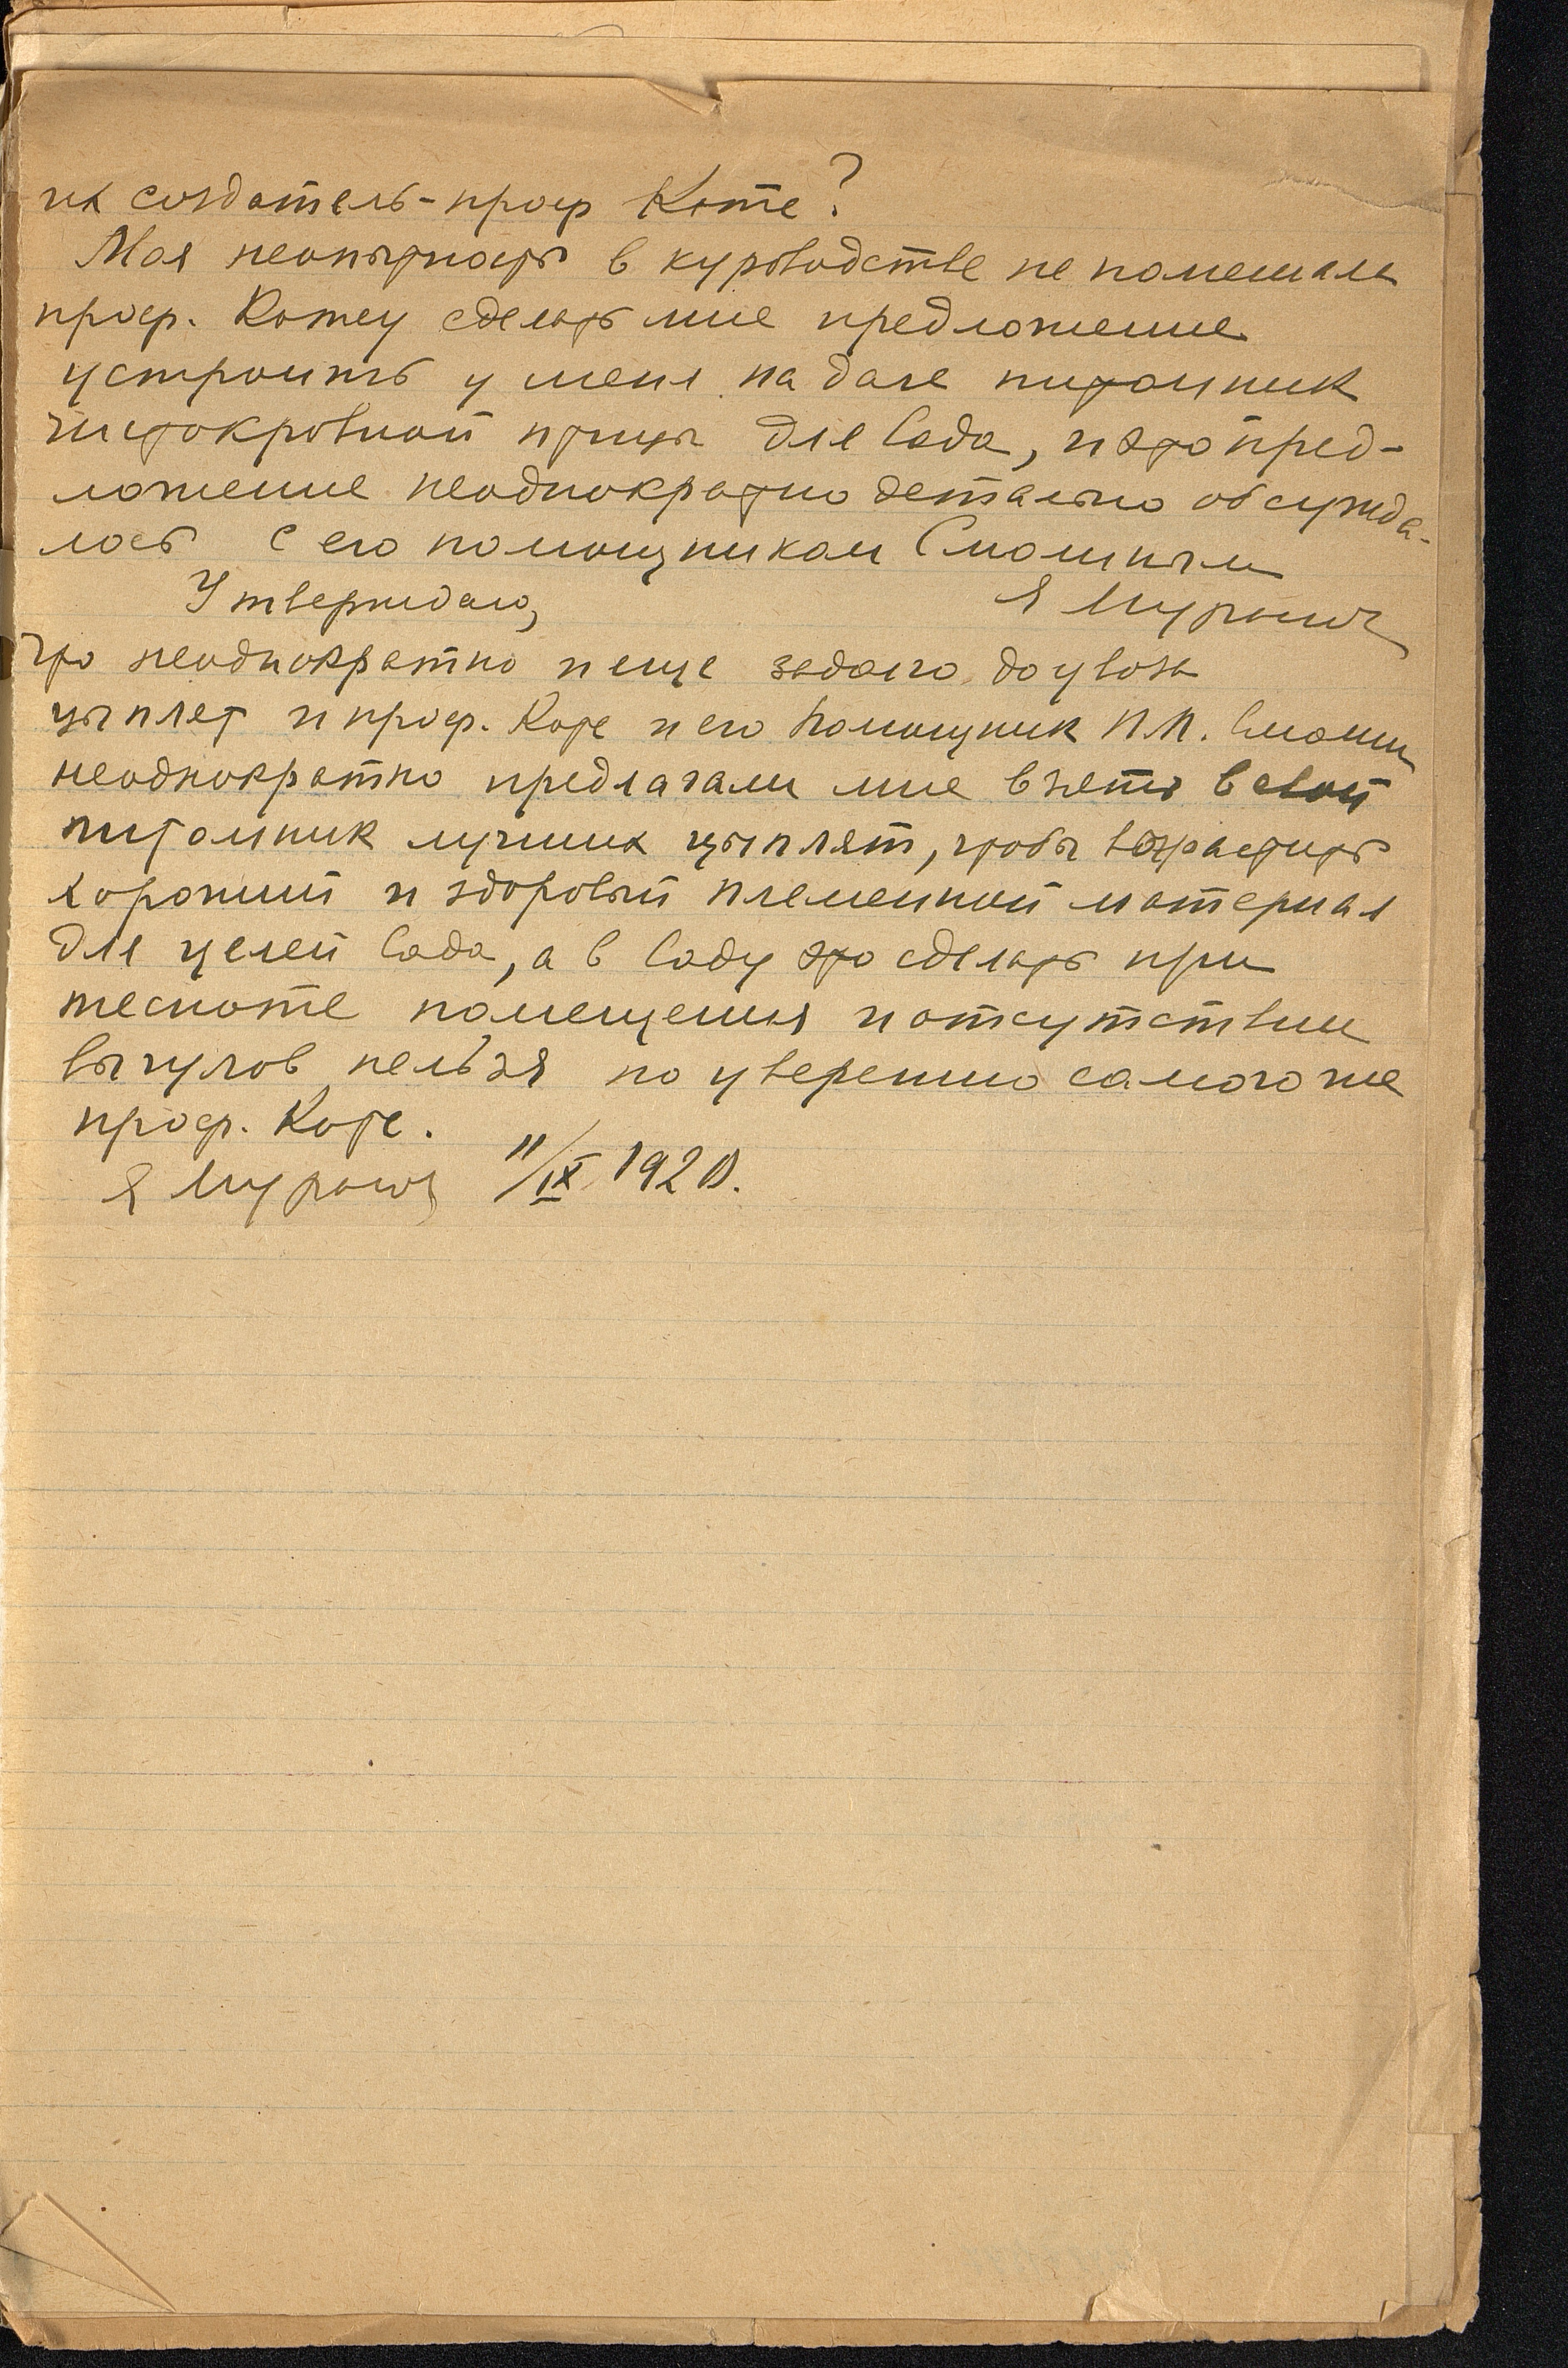 их создатель - проф Котс?
Моя неопытность в куроводстве не помешала
проф. Котсу сделать мне предложение
устроить у меня на даче питомник
чистокровной птицы для Сада, и это пред-
ложение неоднократно детально обсужда-
лось с его помощником Смолиным
Утверждаю, Я
что неоднократно и еще задолго до увоза
цыплят и проф. Котс и его помощник П.П. Смолин
неоднократно предлагали мне взять в свой
питомник лучших цыплят, чтобы возрастить
хороший и здоровый племенной материал
для целей Сада, а в Саду это сделать при
тесноте помещения и отсутствии
выгулов нельзя по уверению самого же
проф. Котс.
Я 11/IX 1920.